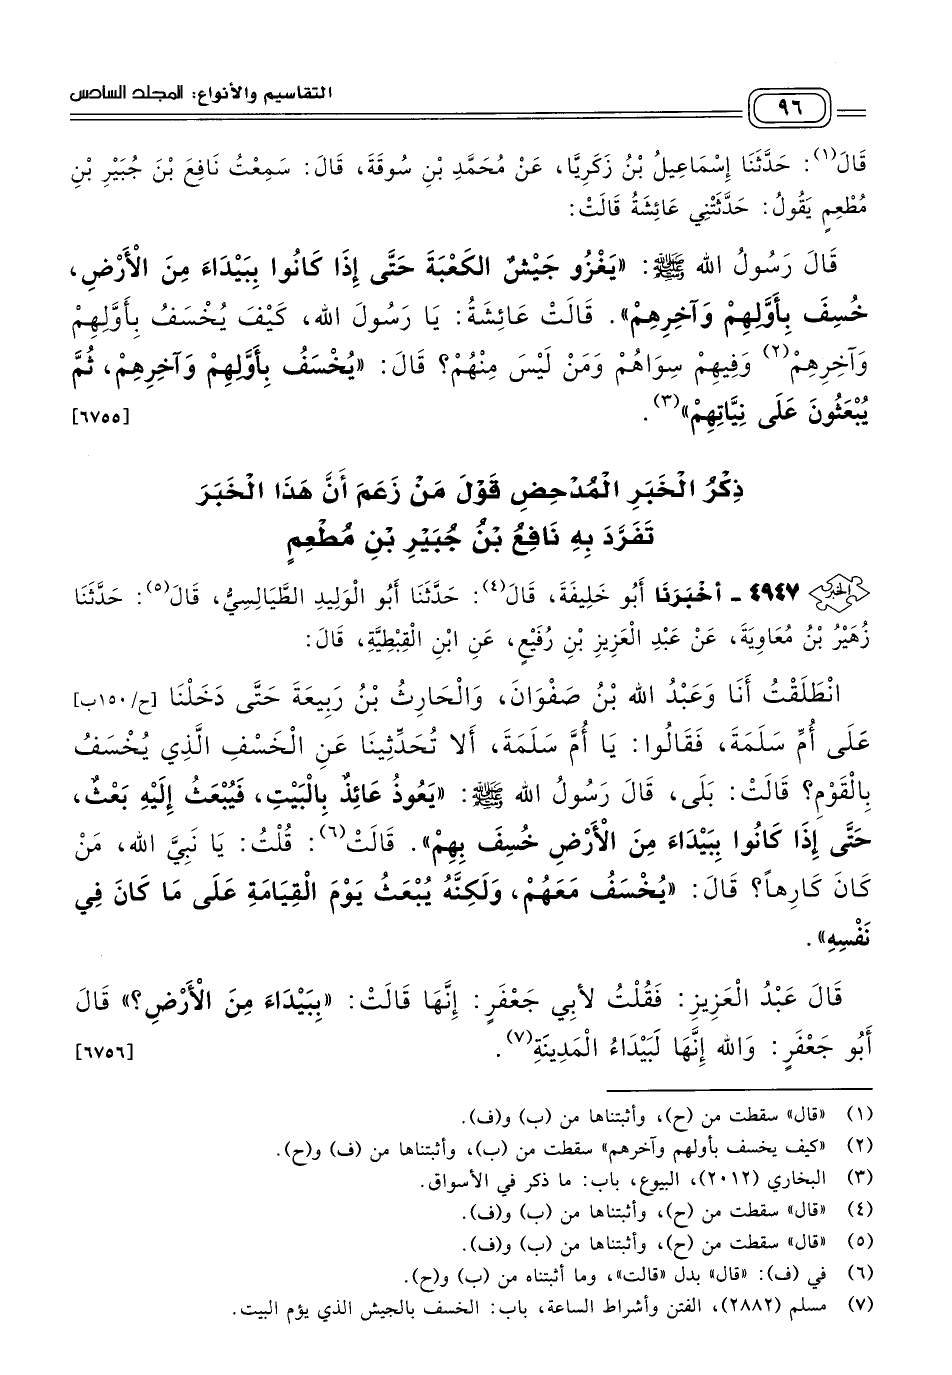 التقاسيم والأنواع: المجلد السادس
٩٦
قَالَ(١): حَدَّثَنَا إِسْمَاعِيلُ بْنُ زَكَرِيَّا، عَنْ مُحَمَّدِ بْنِ سُوقَةَ، قَالَ: سَمِعْتُ نَافِعَ بْنَ جُبَيْرِ بْنِ
مُطْعِمٍ يَقُولُ: حَدَّثَتْنِي عَائِشَةُ قَالَتْ:
قَالَ رَسُولُ الله ﷺ: «يَغْزُو جَيْشٌ الكَعْبَةَ حَتَّى إِذَا كَانُوا بِبَيْدَاءَ مِنَ الْأَرْضِ،
خُسِفَ بِأَوَّلِهِمْ وَآخِرِهِمْ». قَالَتْ عَائِشَةُ: يَا رَسُولَ الله، كَيْفَ يُخْسَفُ بِأَوَّلِهِمْ
وَآخِرِهِمْ(٢) وَفِيهِمْ سِوَاهُمْ وَمَنْ لَيْسَ مِنْهُمْ؟ قَالَ: «يُخْسَفُ بِأَوَّلِهِمْ وَآخِرِهِمْ، ثُمَّ
يُبْعَثُونَ عَلَى نِيَّاتِهِمْ»(٣). [٦٧٥٥]
ذِكْرُ الْخَبَرِ الْمُدْحِضِ قَوْلَ مَنْ زَعَمَ أَنَّ هَذَا الْخَبَرَ
تَفَرَّدَ بِهِ نَافِعُ بْنُ جُبَيْرِ بْنِ مُطْعِمٍ
٤٩٤٧ - أَخْبَرَنَا أَبُو خَلِيفَةَ، قَالَ(٤): حَدَّثَنَا أَبُو الْوَلِيدِ الطَّيَالِسِيُّ، قَالَ(٥): حَدَّثَنَا
زُهَيْرُ بْنُ مُعَاوِيَةَ، عَنْ عَبْدِ الْعَزِيزِ بْنِ رُفَيْعٍ، عَنِ ابْنِ الْقِبْطِيَّةِ، قَالَ:
انْطَلَقْتُ أَنَا وَعَبْدُ الله بْنُ صَفْوَانَ، وَالْحَارِثُ بْنُ رَبِيعَةَ حَتَّى دَخَلْنَا [ح/١٥٠ب]
عَلَى أُمِّ سَلَمَةَ، فَقَالُوا: يَا أُمَّ سَلَمَةَ، أَلا تُحَدِّثِينَا عَنِ الْخَسْفِ الَّذِي يُخْسَفُ
بِالْقَوْمِ؟ قَالَتْ: بَلَى، قَالَ رَسُولُ الله ﷺ: «يَعُوذُ عَائِذٌ بِالْبَيْتِ، فَيُبْعَثُ إِلَيْهِ بَعْثٌ،
حَتَّى إِذَا كَانُوا بِبَيْدَاءَ مِنَ الْأَرْضِ خُسِفَ بِهِمْ». قَالَتْ(٦): قُلْتُ: يَا نَبِيَّ الله، مَنْ
كَانَ كَارِهاً؟ قَالَ: «يُخْسَفُ مَعَهُمْ، وَلَكِنَّهُ يُبْعَثُ يَوْمَ الْقِيَامَةِ عَلَى مَا كَانَ فِي
نَفْسِهِ».
قَالَ عَبْدُ الْعَزِيزِ: فَقُلْتُ لأَبِي جَعْفَرٍ: إِنَّهَا قَالَتْ: «بِبَيْدَاءَ مِنَ الْأَرْضِ؟» قَالَ
أَبُو جَعْفَرٍ: وَالله إِنَّهَا لَبَيْدَاءُ الْمَدِينَةِ(٧). [٦٧٥٦]
(١) «قال» سقطت من (ح)، وأثبتناها من (ب) و(ف).
(٢) «كيف يخسف بأولهم وآخرهم» سقطت من (ب)، وأثبتناها من (ف) و(ح).
(٣) البخاري (٢٠١٢)، البيوع، باب: ما ذكر في الأسواق.
(٤) «قال» سقطت من (ح)، وأثبتناها من (ب) و(ف).
(٥) «قال» سقطت من (ح)، وأثبتناها من (ب) و(ف).
(٦) في (ف): «قال» بدل «قالت»، وما أثبتناه من (ب) و(ح).
(٧) مسلم (٢٨٨٢)، الفتن وأشراط الساعة، باب: الخسف بالجيش الذي يؤم البيت.